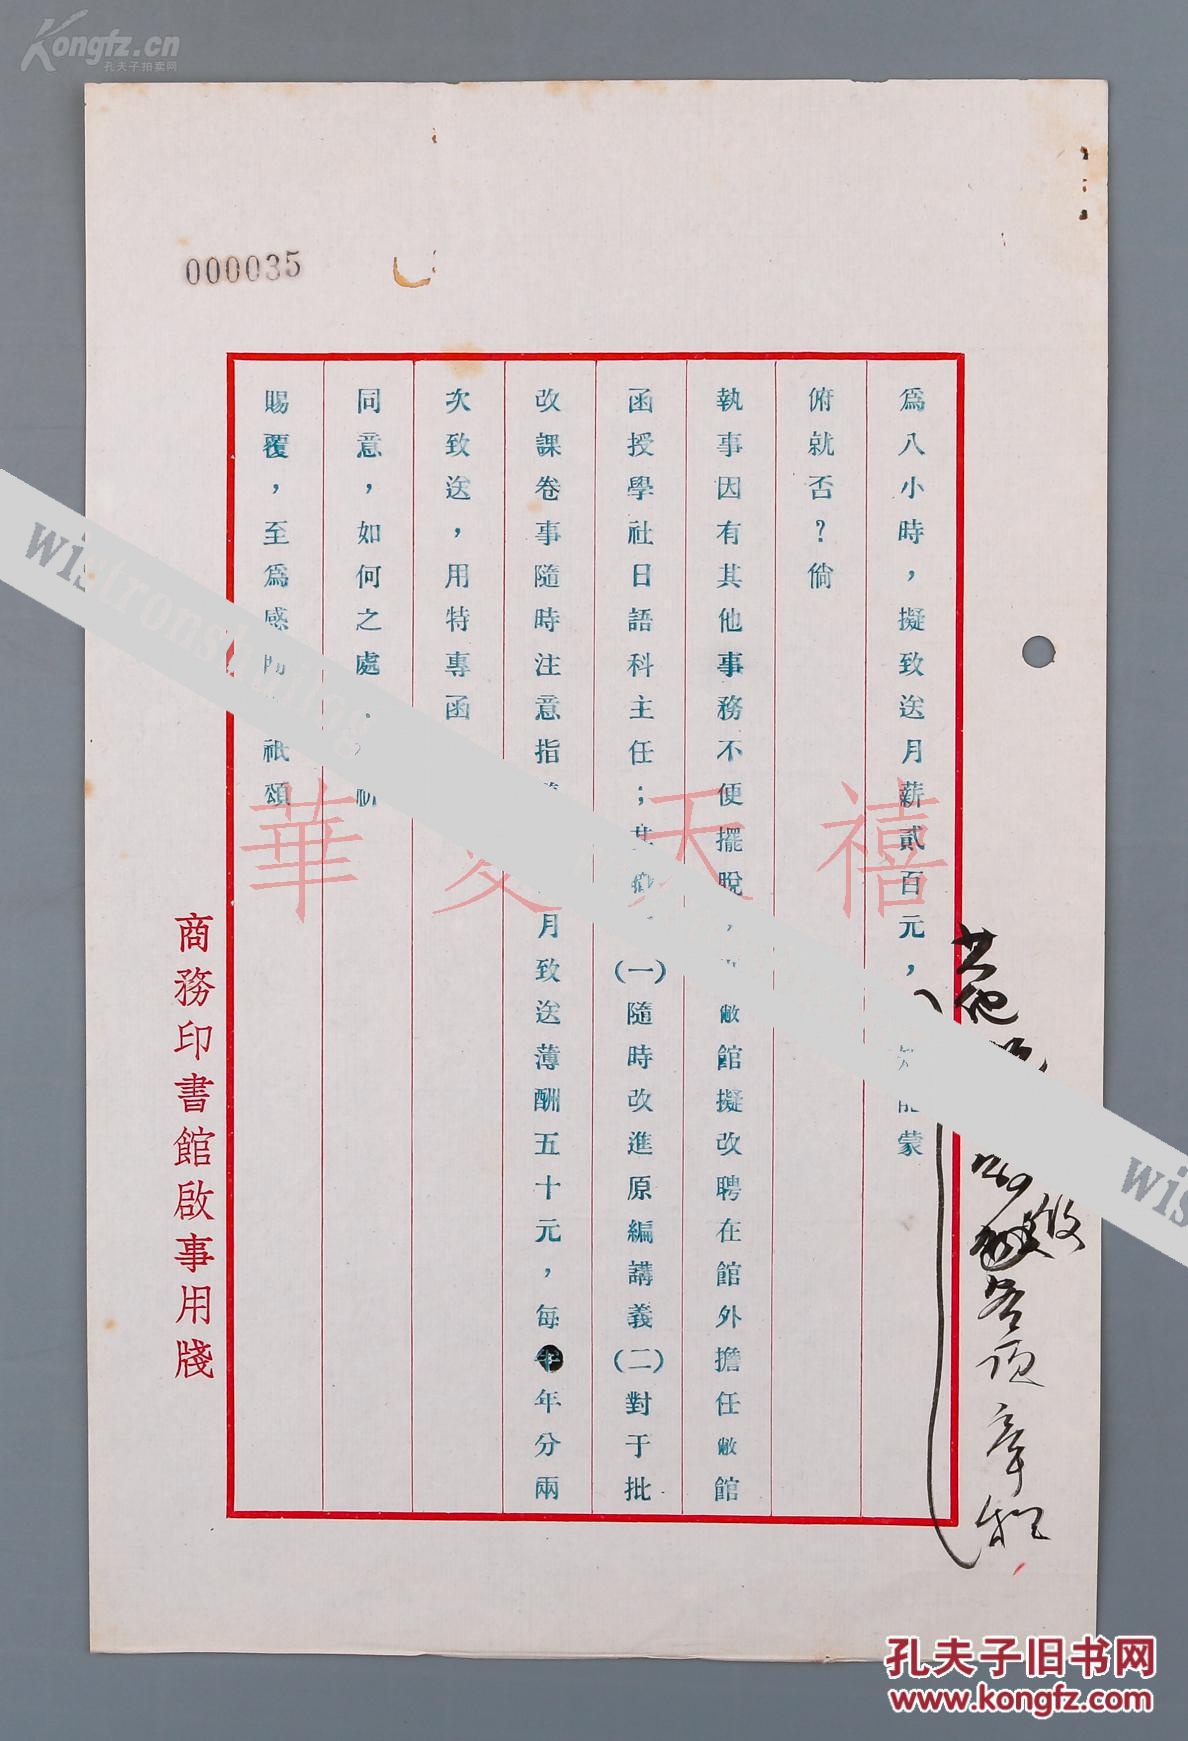 Kongfz.cn
孔夫子拍卖网
000035
為八小時，擬致送月薪貳百元，
蒙
俯就否？倘
執事因有其他事務不便擺脫，
敝館擬改聘在館外擔任敝館
函授學社日語科主任；
(一)隨時改進原編講義(二)對于批
改課卷事隨時注意指
月致送薄酬五十元，每
年分兩
次致送，用特專函
同意，如何之處
賜覆，至為感
祇頌
其他
各項章程
商務印書館啟事用牋
華夏天禧
wistronshang
wis
孔夫子旧书网
www.kongfz.com